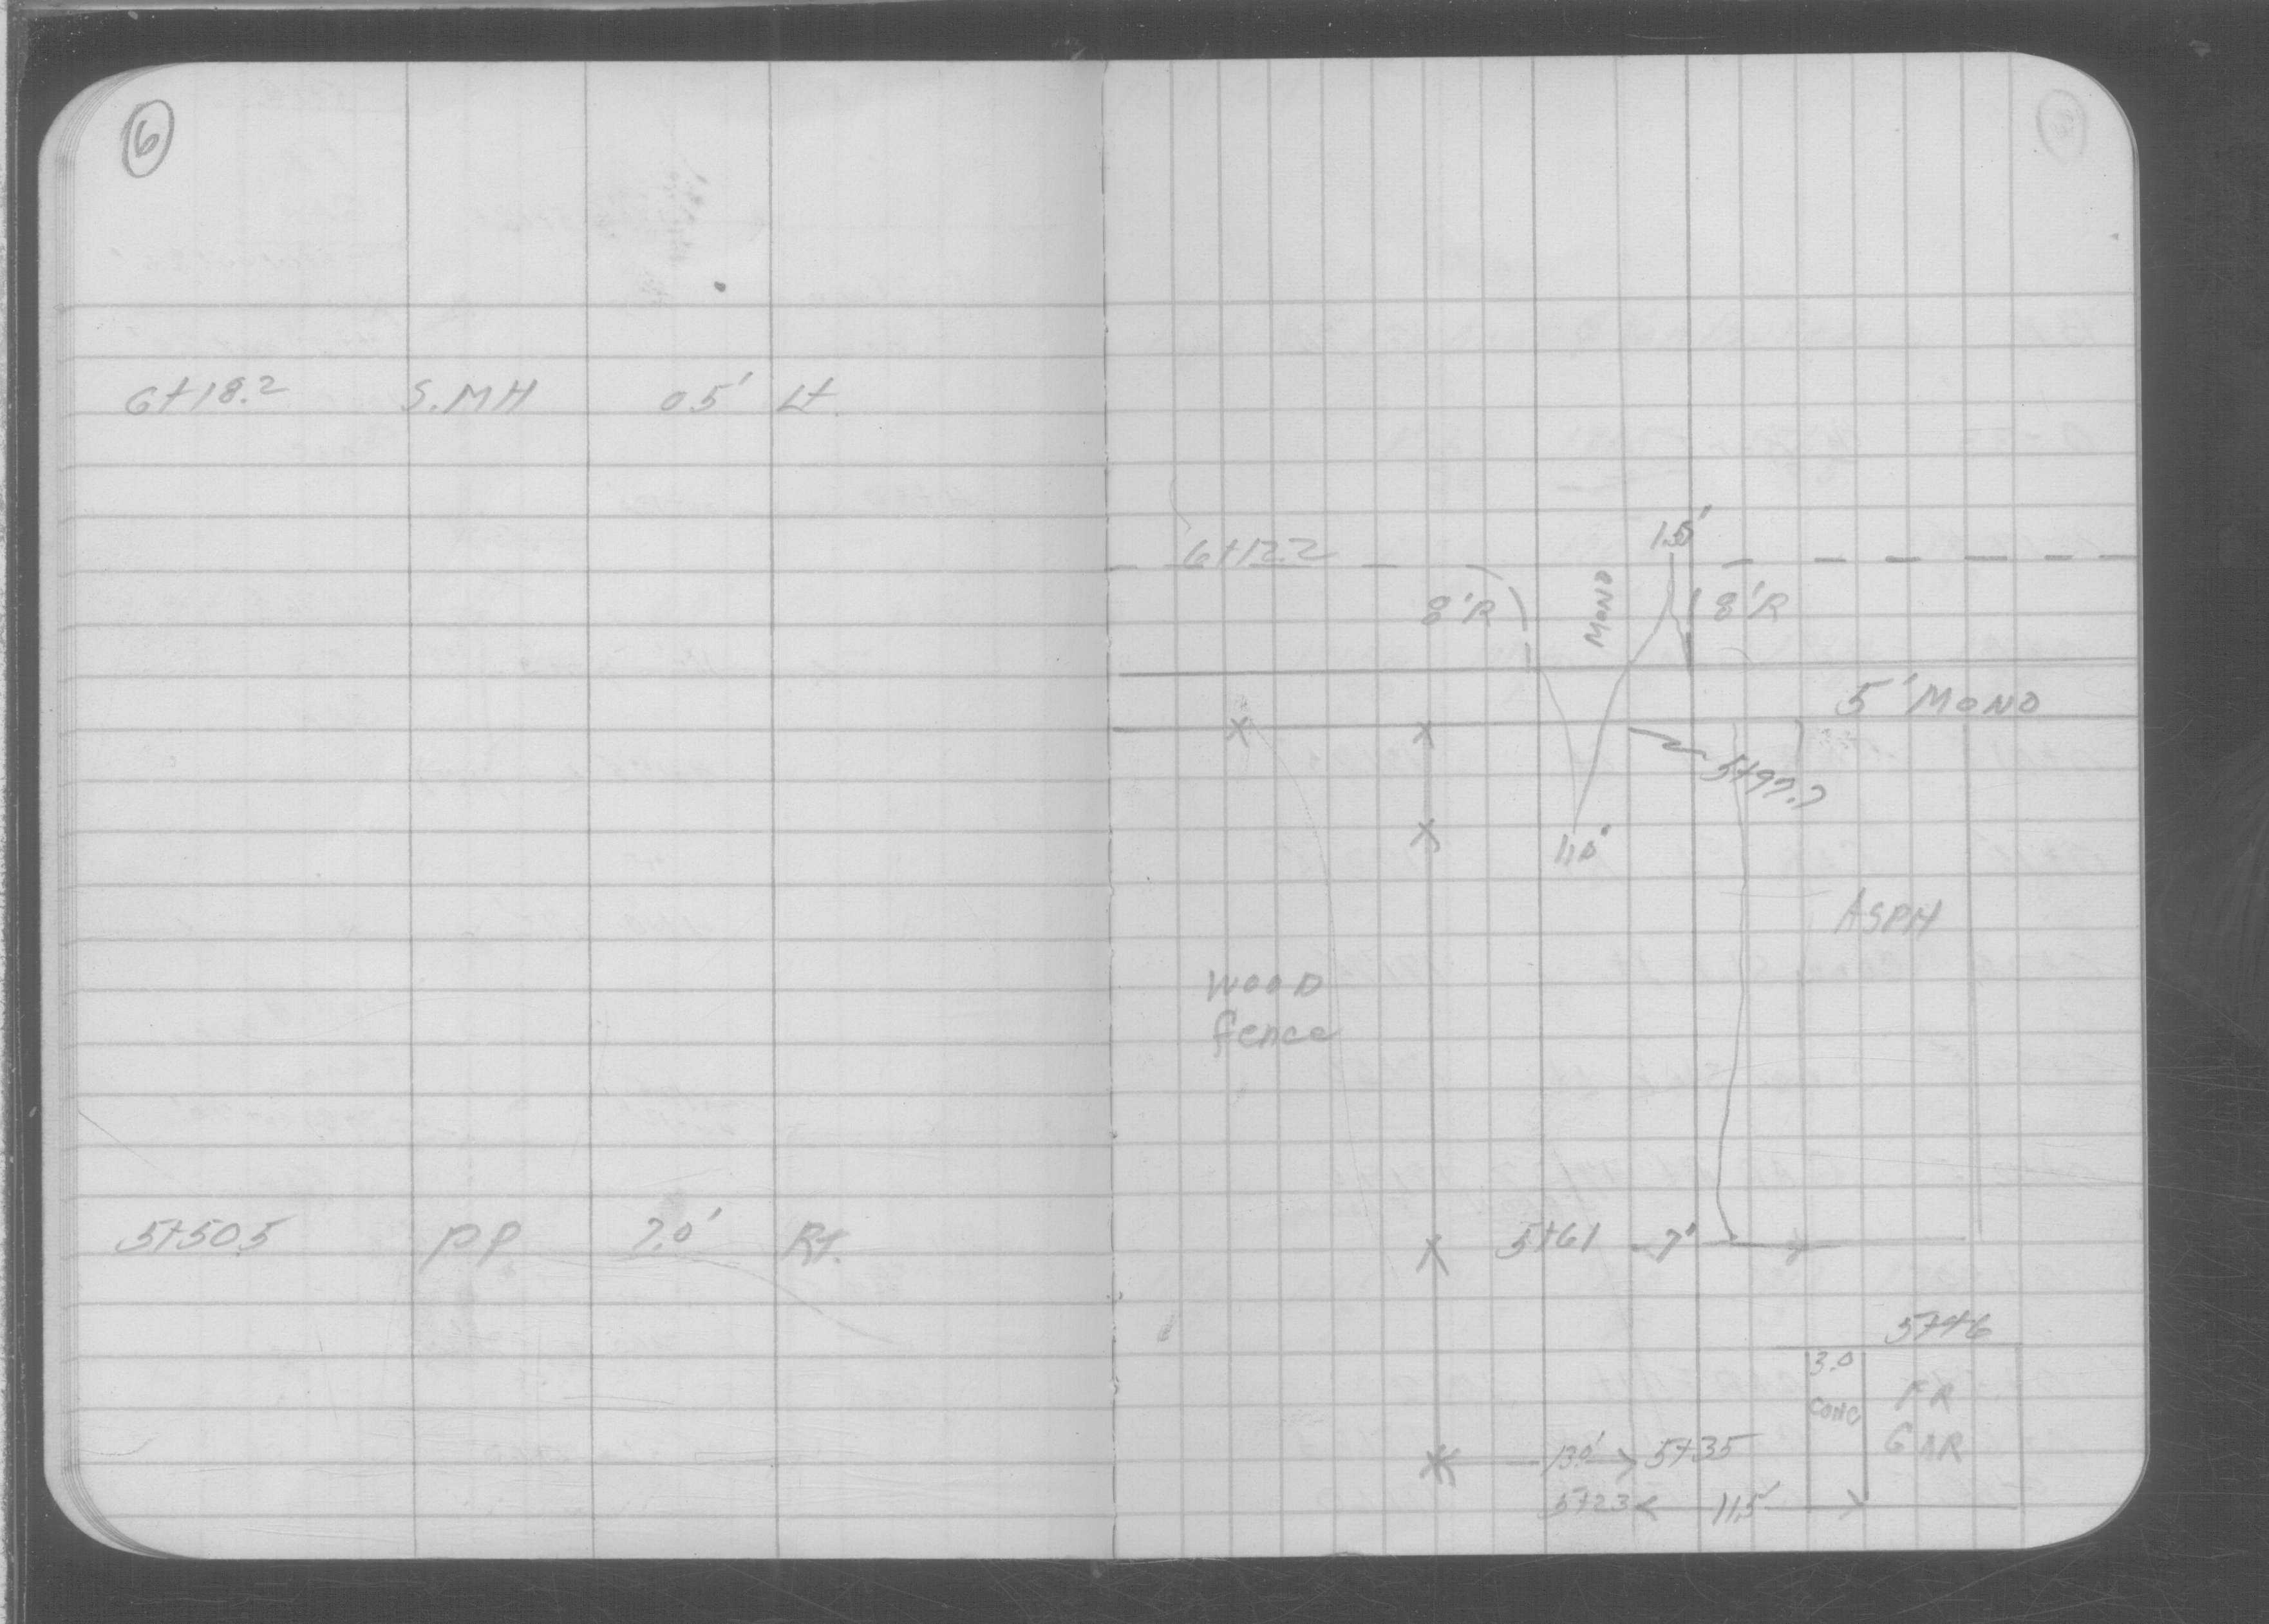 6
6+18.2 S.MH 0.5' Lt.
5+50.5 PP. 7.0' Rt.
15'
6+12.2
8'R MONO 8'R
5' MONO
5+97.7
11.0'
ASPH
WOOD
fence
5+61 7'
5+46
3.0
CONC
FR
GAR
13.0' 5+35
5+23 11.5'